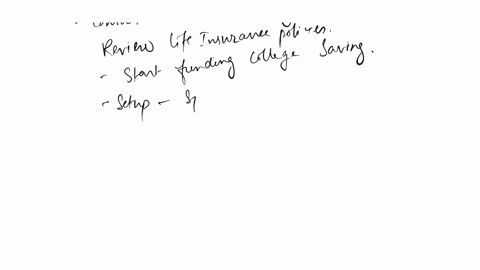 Review Life Insurance policies.
- Start funding College Saving.
- Setup -